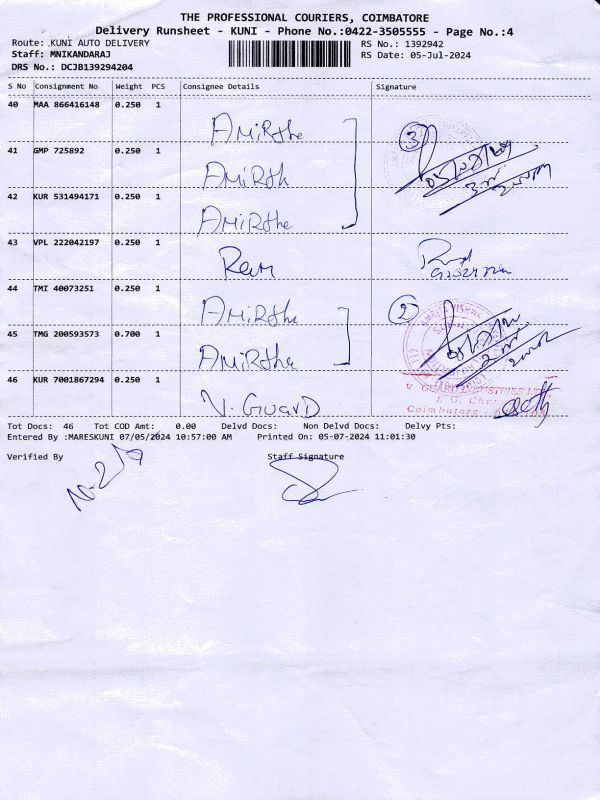 THE PROFESSIONAL COURIERS, COIMBATORE
Delivery Runsheet - KUNI - Phone No.:0422-3505555 - Page No.:4
Route: KUNI AUTO DELIVERY RS No.: 1392942
Staff: MNIKANDARAJ RS Date: 05-Jul-2024
DRS No.: DCJB139294204
S No Consignment No Weight PCS Consignee Details Signature
40 MAA 866416148 0.250 1 AMiRthe 3
41 GMP 725892 0.250 1 AMiRth
42 KUR 531494171 0.250 1 AMiRthe
43 VPL 222042197 0.250 1 Ram
44 TMI 40073251 0.250 1 AMiRtha 2
45 TMG 200593573 0.700 1 AMiRtha
46 KUR 7001867294 0.250 1 V. GUARD
Tot Docs: 46 Tot COD Amt: 0.00 Delvd Docs: Non Delvd Docs: Delvy Pts:
Entered By :MARESKUNI 07/05/2024 10:57:00 AM Printed On: 05-07-2024 11:01:30
Verified By Staff Signature